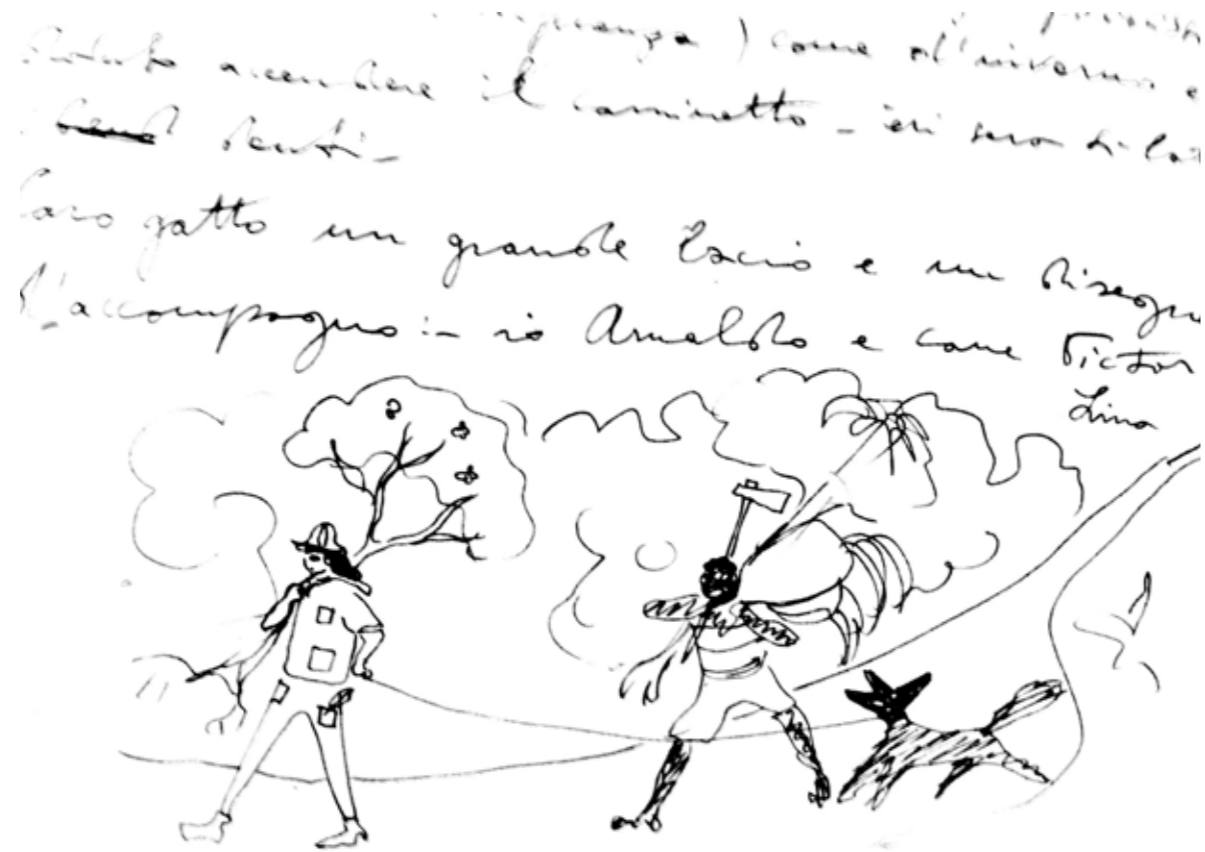 ) come d'inverno e
accendere il caminetto - ieri sera di
denti -
Caro gatto un grande bacio e un disegn
l'accompagno :- io Arnaldo e cane Victor
Lina